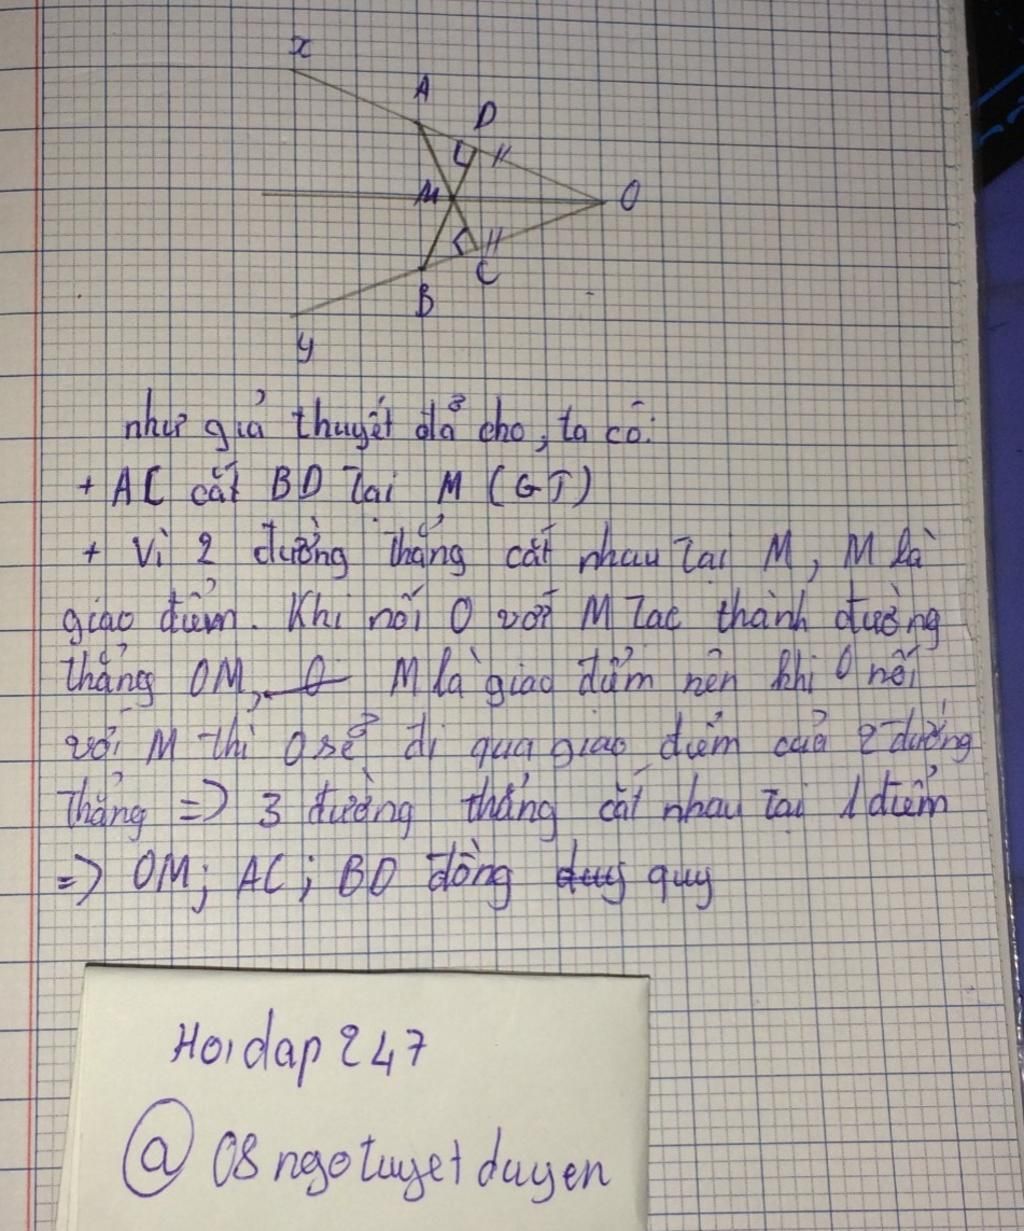 x
A
D
M
O
C
B
y
như giả thuyết đả cho, ta có:
+ AC cắt BD tại M (GT)
+ Vì 2 đường thẳng cắt nhau tại M, M là
giao điểm. Khi nối O với M tạo thành đường
thẳng OM, M là giao điểm nên khi O nối
với M thì O sẽ đi qua giao điểm của 2 đường
thẳng => 3 đường thẳng cắt nhau tại 1 điểm
=> OM; AC; BD đồng quy
Hoidap247
@ 08ngotuyetduyen